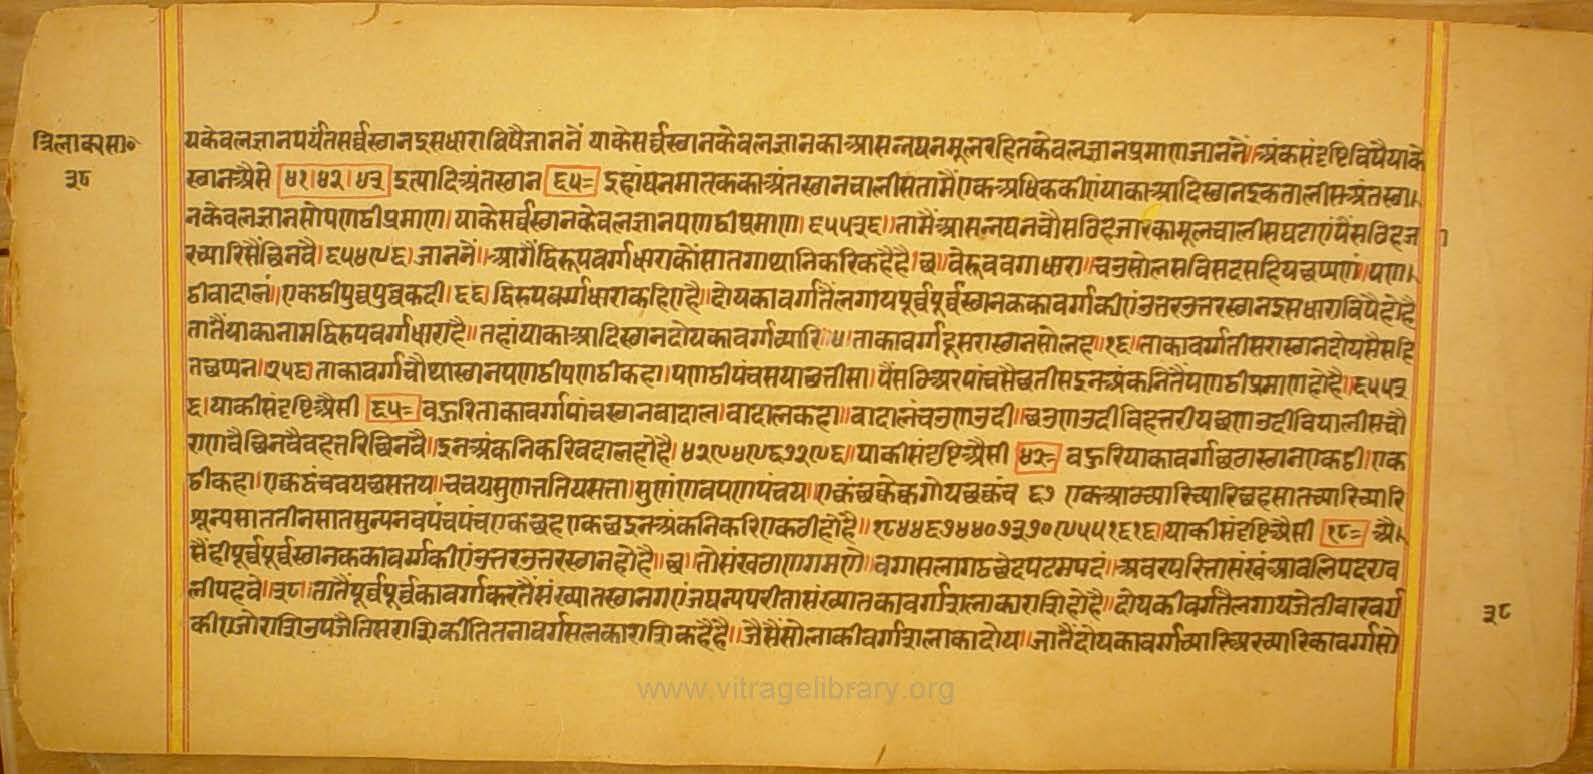 त्रिलोकसा०
३८
यकेवलज्ञानपर्यंतसर्व्वस्थानइसधाराविषैजाननें याकेसर्व्वस्थानकेवलज्ञानकाआसन्नघनमूलरहितकेवलज्ञानप्रमाणजाननें॥अंकसंदृष्टिविषैयाके
स्थानअैसे ४१।४२।४३ इत्यादिअंतस्थान ६५= इहांघनमातककाअंतस्थानचालीसतामैंएकअधिककीएंयाकाआदिस्थानइकतालीसअंतस्था।
नकेवलज्ञानसोपणट्ठीप्रमाण।याकेसर्व्वस्थानकेवलज्ञानपणट्ठीप्रमाण।६५५३६॥तामैंआसन्नघनचौसठिहजारकामूलचालीसघटाएंपैंसठिहज
रच्यारिसैंछिनवै।६५४९६।जाननें॥आगैंद्विरूपवर्गधाराकौंसातगाथानिकरिकहैहै।छ॥वेरूववगाधारा॥चउसोलसविसदसहियछप्पणं॥पण।
ट्ठीवादालं॥एकट्ठीपुव्वपुव्वकदी।६६।द्विरूपवर्ग्गधाराकहिएहै॥दोयकावर्गतैंलगायपूर्व्वपूर्व्वस्थानककावर्गकीएंउत्तरउत्तरस्थानइसधाराविषैहोहै
तातैंयाकानामद्विरूपवर्ग्गधाराहै॥तहांयाकाआदिस्थानदोयकावर्गच्यारि।४।ताकावर्ग्गदूसरास्थानसोलह॥१६॥ताकावर्ग्गतीसरास्थानदोयसैसहि
तछप्पन॥२५६।ताकावर्ग्गचौथास्थानपणट्ठीपणट्ठीकहा।पणट्ठीपंचसयाछत्तीसा।पैंसठिअरपांचसैछत्तीसइनअंकनितैंपणट्ठीप्रमाणहोहै॥६५५३
६।याकीसंदृष्टिअैसी ६५= वहुरिताकावर्ग्गपांचस्थानवादाल।वादालकहा॥वादालंचउणउदी॥छउणउदीविहत्तरीयछणउदीवियालीसचौ
राणवैछिनवैवहतरिछिनवै॥इनअंकनिकरिवदालहोहै।४२९४९६७२९६॥याकीसंदृष्टिअैसी ४२= वहुरियाकावर्ग्गछठास्थानएकट्ठी।एक
ट्ठीकहा।एकट्ठंचचयछसत्तय॥चचयसुणत्ततियसत्ता।सुणंणवपणपंचय॥एकंछक्केकगोयछक्कंच ६७ एकआठच्यारिच्यारिछहसातच्यारिच्यारि
शून्यसाततीनसातसुन्यनवपंचपंचएकछहएकछइनअंकनिकरिएकठीहोहै॥१८४४६७४४०७३७०९५५१६१६॥याकीसंदृष्टिअैसी १८= अै।
सैंहीपूर्व्वपूर्व्वस्थानककावर्ग्गकीएंउत्तरउत्तरस्थानहोहै॥छ॥तोसंखठाणगमणे॥वग्गसलागठ्ठछेदपढमपदं॥अवरपरित्तासंखंआवलिपदराव
लीपदवे॥३८॥तातैंपूर्व्वपूर्व्वकावर्ग्गकरतैंसंख्यातस्थानगएंजघन्यपरीतासंख्यातकावर्ग्गशलाकाराशिहोहै॥दोयकीवर्गतैलगायजेतीवारवर्ग
कीएजोराशिउपजैतिसराशिकीतितनावर्गसलकाराशिकहैहै॥जैसैंसोलाकीवर्ग्गशलाकादोय॥जातैंदोयकावर्ग्गच्यारिअरच्यारिकावर्ग्गसो
३८
www.vitragelibrary.org